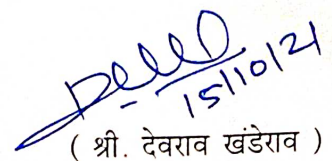 15/10/21
( श्री. देवराव खंडेराव )